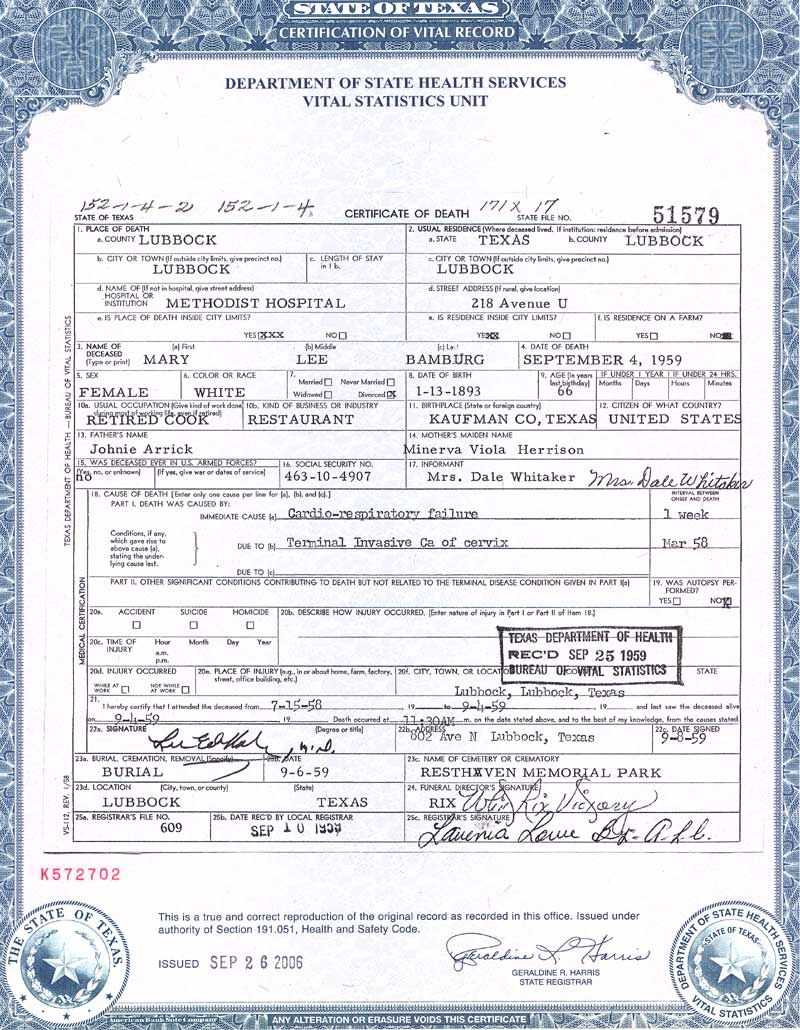 STATE OF TEXAS
CERTIFICATION OF VITAL RECORD
DEPARTMENT OF STATE HEALTH SERVICES
VITAL STATISTICS UNIT
152-1-4-2 152-1-4 CERTIFICATE OF DEATH 171X 17
STATE OF TEXAS STATE FILE NO. 51579
1. PLACE OF DEATH 2. USUAL RESIDENCE (Where deceased lived. If institution: residence before admission)
a. COUNTY LUBBOCK a. STATE TEXAS b. COUNTY LUBBOCK
b. CITY OR TOWN (If outside city limits, give precinct no.) c. LENGTH OF STAY in 1 b. c. CITY OR TOWN (If outside city limits, give precinct no.)
LUBBOCK LUBBOCK
d. NAME OF (If not in hospital, give street address) d. STREET ADDRESS (If rural, give location)
HOSPITAL OR INSTITUTION METHODIST HOSPITAL 218 Avenue U
e. IS PLACE OF DEATH INSIDE CITY LIMITS? e. IS RESIDENCE INSIDE CITY LIMITS? f. IS RESIDENCE ON A FARM?
YES XXX NO YES XX NO YES NO
3. NAME OF DECEASED (Type or print) (a) First (b) Middle (c) Last 4. DATE OF DEATH
MARY LEE BAMBURG SEPTEMBER 4, 1959
5. SEX 6. COLOR OR RACE 7. Married Never Married 8. DATE OF BIRTH 9. AGE (In years last birthday) IF UNDER 1 YEAR IF UNDER 24 HRS.
Months Days Hours Minutes
FEMALE WHITE Widowed Divorced X 1-13-1893 66
10a. USUAL OCCUPATION (Give kind of work done during most of working life, even if retired) 10b. KIND OF BUSINESS OR INDUSTRY 11. BIRTHPLACE (State or foreign country) 12. CITIZEN OF WHAT COUNTRY?
RETIRED COOK RESTAURANT KAUFMAN CO, TEXAS UNITED STATES
13. FATHER'S NAME 14. MOTHER'S MAIDEN NAME
Johnie Arrick Minerva Viola Herrison
15. WAS DECEASED EVER IN U.S. ARMED FORCES? 16. SOCIAL SECURITY NO. 17. INFORMANT
(Yes, no, or unknown) (If yes, give war or dates of service)
no 463-10-4907 Mrs. Dale Whitaker Mrs. Dale Whitaker
18. CAUSE OF DEATH [Enter only one cause per line for (a), (b), and (c).] INTERVAL BETWEEN ONSET AND DEATH
PART I. DEATH WAS CAUSED BY:
IMMEDIATE CAUSE (a) Cardio-respiratory failure 1 week
Conditions, if any, which gave rise to above cause (a), stating the underlying cause last.
DUE TO (b) Terminal Invasive Ca of cervix Mar 58
DUE TO (c)
PART II. OTHER SIGNIFICANT CONDITIONS CONTRIBUTING TO DEATH BUT NOT RELATED TO THE TERMINAL DISEASE CONDITION GIVEN IN PART I(a) 19. WAS AUTOPSY PERFORMED?
YES NO X
20a. ACCIDENT SUICIDE HOMICIDE 20b. DESCRIBE HOW INJURY OCCURRED. (Enter nature of injury in Part I or Part II of Item 18.)
20c. TIME OF INJURY Hour Month Day Year
a.m.
p.m.
TEXAS DEPARTMENT OF HEALTH
REC'D SEP 25 1959
BUREAU OF VITAL STATISTICS
20d. INJURY OCCURRED 20e. PLACE OF INJURY (e.g., in or about home, farm, factory, street, office building, etc.) 20f. CITY, TOWN, OR LOCATION COUNTY STATE
WHILE AT WORK NOT WHILE AT WORK Lubbock, Lubbock, Texas
21. I hereby certify that I attended the deceased from 7-15-58 19 to 9-4-59 19 and last saw the deceased alive
on 9-4-59 19 Death occurred at 11:30AM m. on the date stated above, and to the best of my knowledge, from the causes stated.
22a. SIGNATURE (Degree or title) 22b. ADDRESS 22c. DATE SIGNED
M.D. 802 Ave N Lubbock, Texas 9-8-59
23a. BURIAL, CREMATION, REMOVAL (Specify) 23b. DATE 23c. NAME OF CEMETERY OR CREMATORY
BURIAL 9-6-59 RESTHAVEN MEMORIAL PARK
23d. LOCATION (City, town, or county) (State) 24. FUNERAL DIRECTOR'S SIGNATURE
LUBBOCK TEXAS RIX Rix
25a. REGISTRAR'S FILE NO. 25b. DATE REC'D BY LOCAL REGISTRAR 25c. REGISTRAR'S SIGNATURE
609 SEP 10 1959 Lavenia Lowe
TEXAS DEPARTMENT OF HEALTH — BUREAU OF VITAL STATISTICS
MEDICAL CERTIFICATION
VS-112, REV. 1/58
K572702
This is a true and correct reproduction of the original record as recorded in this office. Issued under
authority of Section 191.051, Health and Safety Code.
ISSUED SEP 26 2006
Geraldine R. Harris
GERALDINE R. HARRIS
STATE REGISTRAR
THE STATE OF TEXAS
DEPARTMENT OF STATE HEALTH SERVICES
STATE OF TEXAS
VITAL STATISTICS
American Bank Note Company
ANY ALTERATION OR ERASURE VOIDS THIS CERTIFICATE